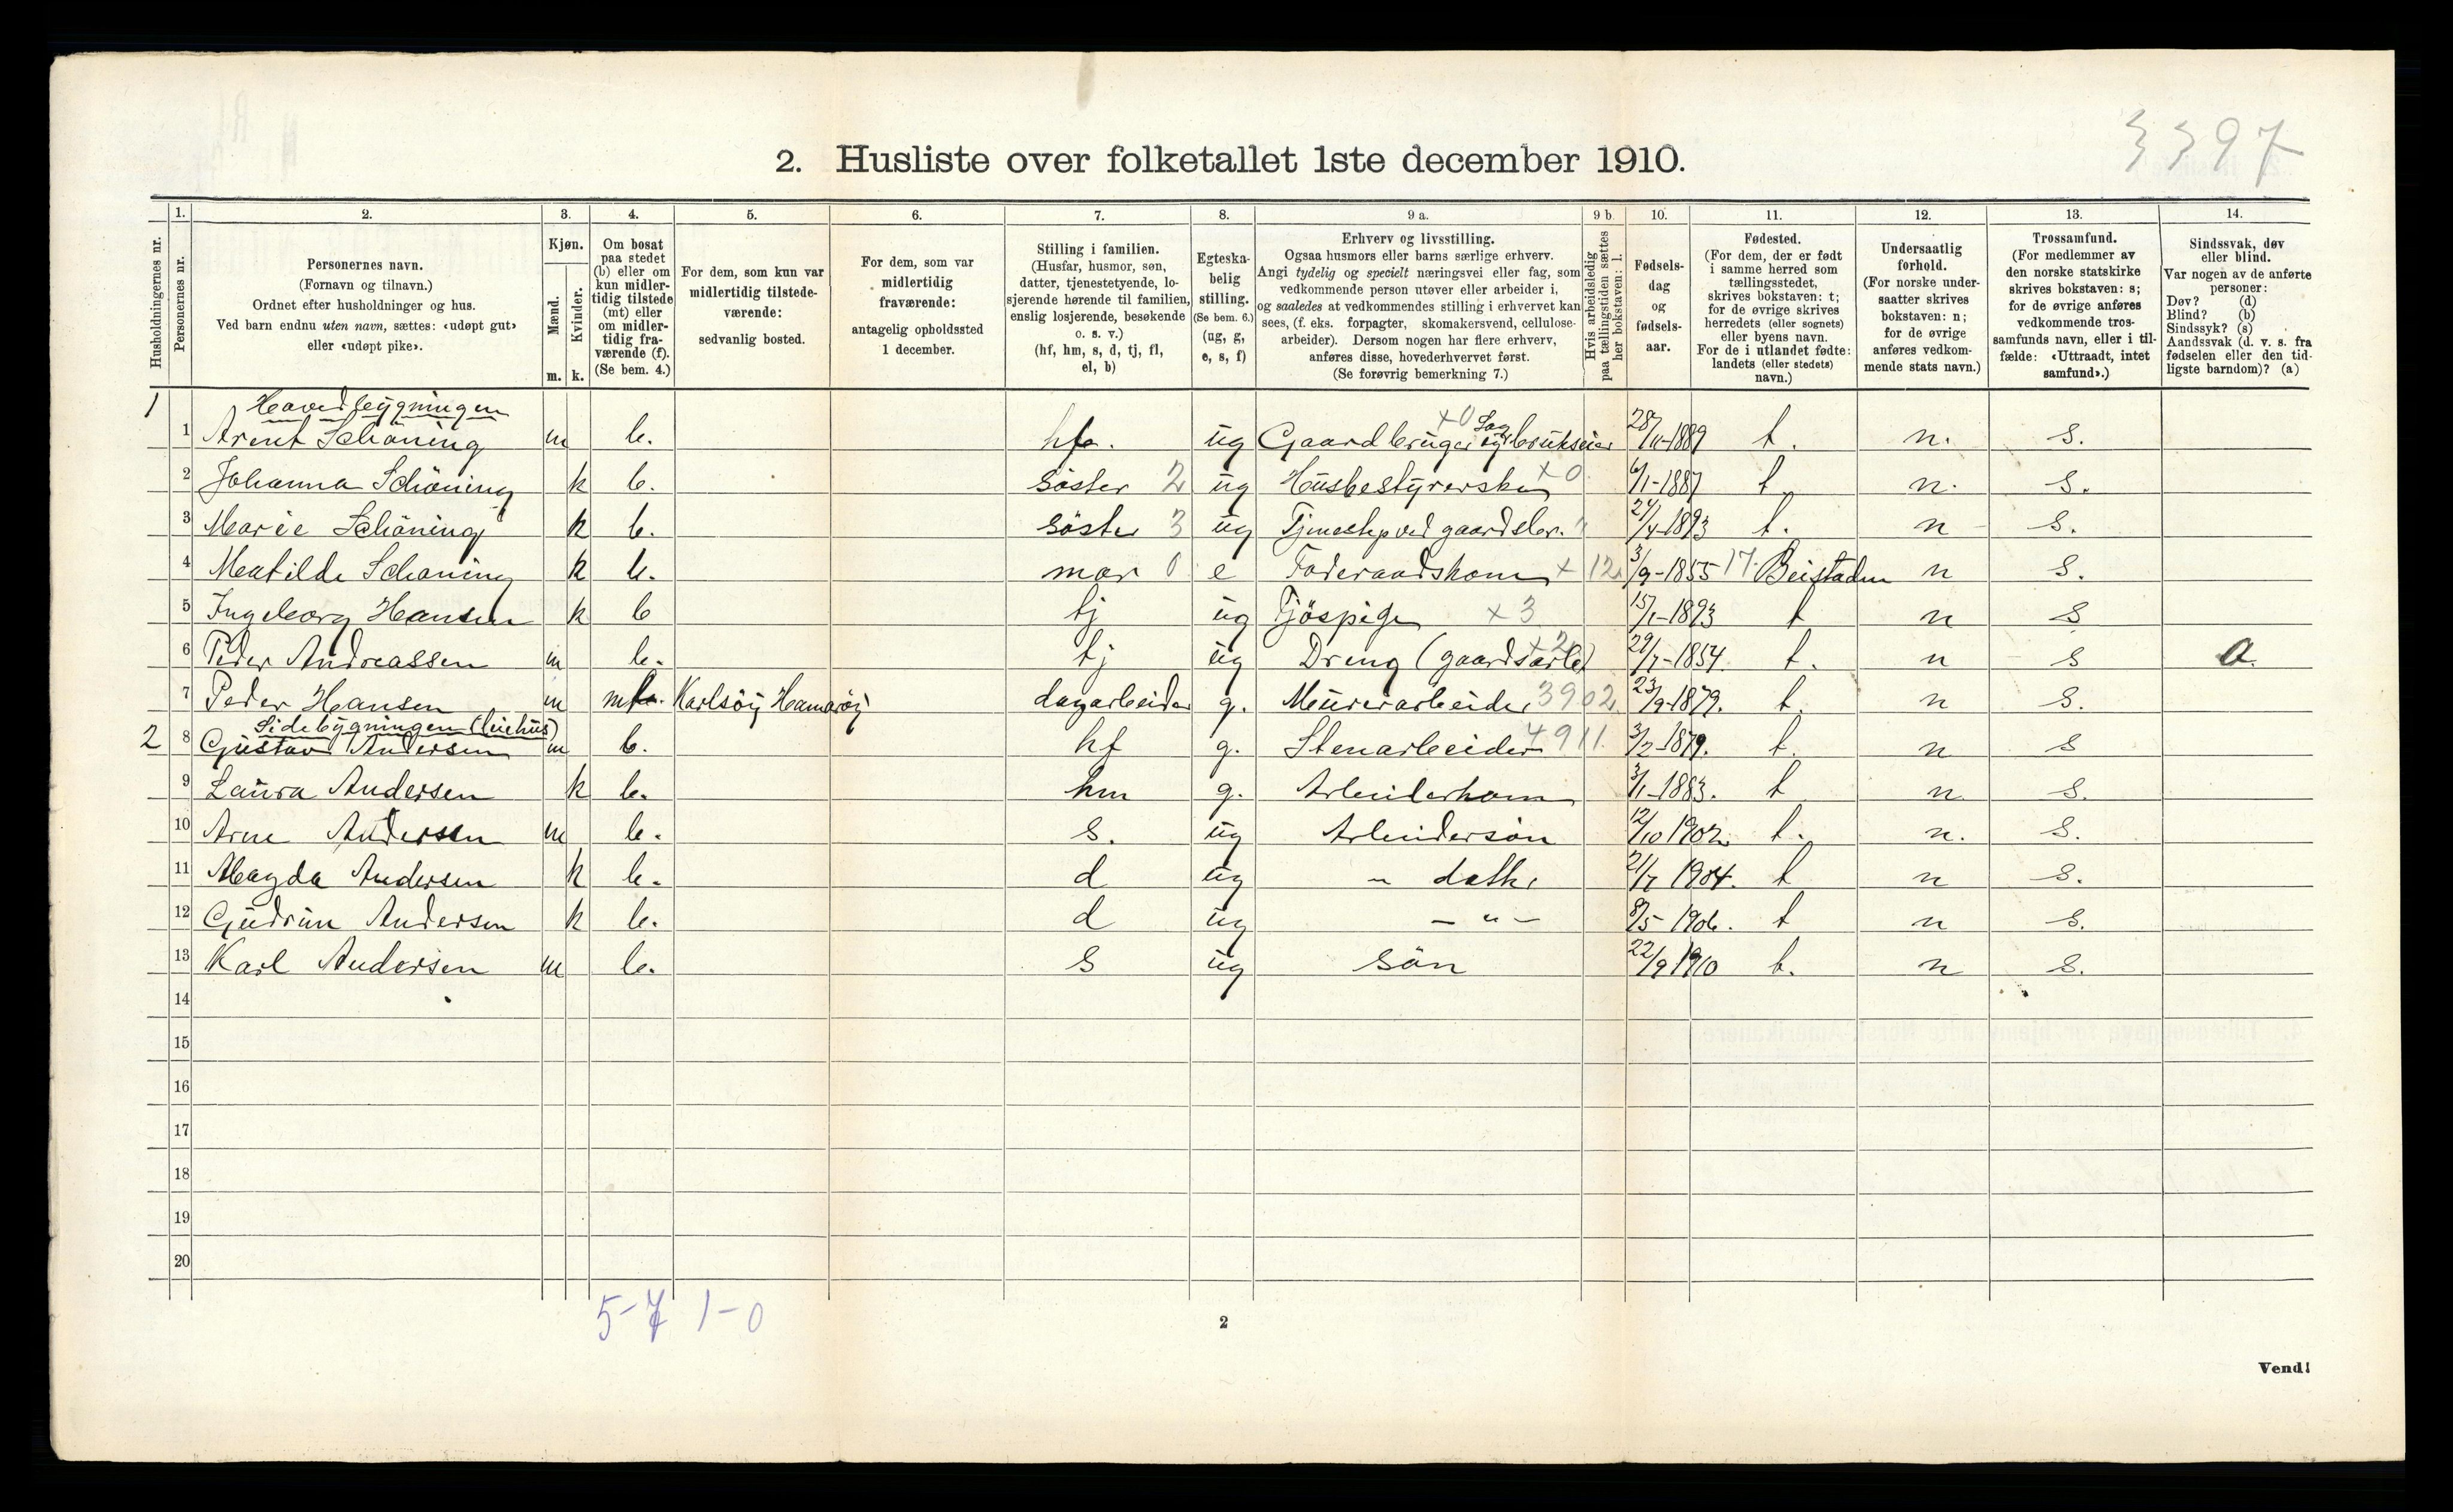 3397
2. Husliste over folketallet 1ste december 1910.
1. 2. 3. 4. 5. 6. 7. 8. 9 a. 9 b 10. 11. 12. 13. 14.
Husholdningernes nr.
Personernes nr.
Personernes navn.
(Fornavn og tilnavn.)
Ordnet efter husholdninger og hus.
Ved barn endnu uten navn, sættes: «udøpt gut»
eller «udøpt pike».
Kjøn.
Mænd.
Kvinder.
m. k.
Om bosat
paa stedet
(b) eller om
kun midler-
tidig tilstede
(mt) eller
om midler-
tidig fra-
værende (f).
(Se bem. 4.)
For dem, som kun var
midlertidig tilstede-
værende:
sedvanlig bosted.
For dem, som var
midlertidig
fraværende:
antagelig opholdssted
1 december.
Stilling i familien.
(Husfar, husmor, søn,
datter, tjenestetyende, lo-
sjerende hørende til familien,
enslig losjerende, besøkende
o. s. v.)
(hf, hm, s, d, tj, fl,
el, b)
Egteska-
belig
stilling.
(Se bem. 6.)
(ug, g,
e, s, f)
Erhverv og livsstilling.
Ogsaa husmors eller barns særlige erhverv.
Angi tydelig og specielt næringsvei eller fag, som
vedkommende person utøver eller arbeider i,
og saaledes at vedkommendes stilling i erhvervet kan
sees, (f. eks. forpagter, skomakersvend, cellulose-
arbeider). Dersom nogen har flere erhverv,
anføres disse, hovederhvervet først.
(Se forøvrig bemerkning 7.)
Hvis arbeidsledig
paa tællingstiden sættes
her bokstaven: l.
Fødsels-
dag
og
fødsels-
aar.
Fødested.
(For dem, der er født
i samme herred som
tællingsstedet,
skrives bokstaven: t;
for de øvrige skrives
herredets (eller sognets)
eller byens navn.
For de i utlandet fødte:
landets (eller stedets)
navn.)
Undersaatlig
forhold.
(For norske under-
saatter skrives
bokstaven: n;
for de øvrige
anføres vedkom-
mende stats navn.)
Trossamfund.
(For medlemmer av
den norske statskirke
skrives bokstaven: s;
for de øvrige anføres
vedkommende tros-
samfunds navn, eller i til-
fælde: «Uttraadt, intet
samfund».)
Sindssvak, døv
eller blind.
Var nogen av de anførte
personer:
Døv? (d)
Blind? (b)
Sindssyk? (s)
Aandssvak (d. v. s. fra
fødselen eller den tid-
ligste barndom)? (a)
1 Hovedbygningen x0 Sag
1 Arent Schöning m b. hf. ug Gaardbruger og brukseier 28/11-1889 t. n. s.
2 Johanna Schöning k b. söster 2 ug Husbestyrerske x0 6/1-1887 t. n. s.
3 Marie Schöning k b. söster 3 ug 24/4-1893 t. n s.
4 Matilde Schöning k b. mor 0 e Föderaadskone x 12 3/9-1855 17 Beistaden n s.
5 Ingeborg Hansen k b tj ug Tjöspige x3 15/1-1893 t n s
6 Peder Andreassen m b. tj ug Dreng (gaardsarb) x2 29/7-1854. t. n s a.
7 Peder Hansen m mt. Karlsöy Hamaröy dagarbeider g. Murerarbeider 3902 23/9-1879. t. n s.
2 Sidebygningen
8 Gustav Andersen m b. hf g. Stenarbeider 4911. 3/2-1879. t. n s
9 Laura Andersen k b. hm g. Arbeiderkone 3/1-1883. t n s.
10 Arne Andersen m b. s. ug Arbeidersön 12/10 1902 t. n. s.
11 Magda Andersen k b. d ug - datter 21/7 1904. t n s.
12 Gudrun Andersen k b. d ug - " - 8/5-1906. t n s.
13 Karl Andersen m b. s ug sön 22/9 1910 t. n s.
14
15
16
17
18
19
20
5-7 1-0
2
Vend!